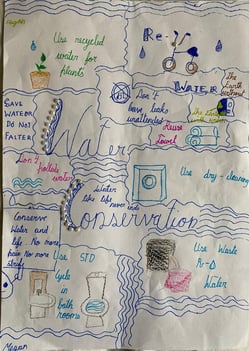 Use recycled
water for
plants
Re-
WATER
The
Earth
SAVE
WATER OR
DO NOT
FALTER
Don't
leave leaks
unattended
Reuse
towel
Water
Don't
pollute
water
Water
like life
never ends
Use dry-cleaning
Conservation
Conserve
Water and
life. No more,
Use STD
Cycle in
bath
rooms
Use Waste
Water
Megan